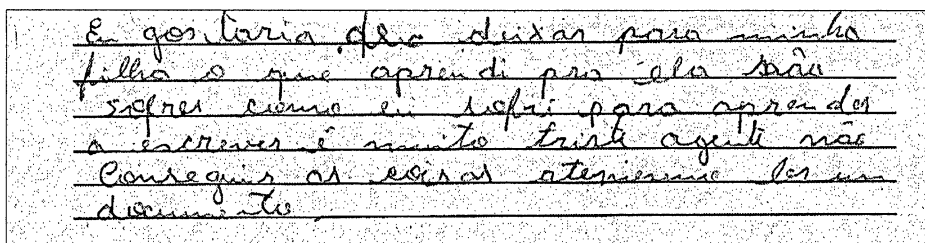 Eu gostaria de deixar para minha
filha o que aprendi pra ela não
sofrer como eu sofri para aprender
a escrever é muito triste agente não
Conseguir as coisas ler um
documento